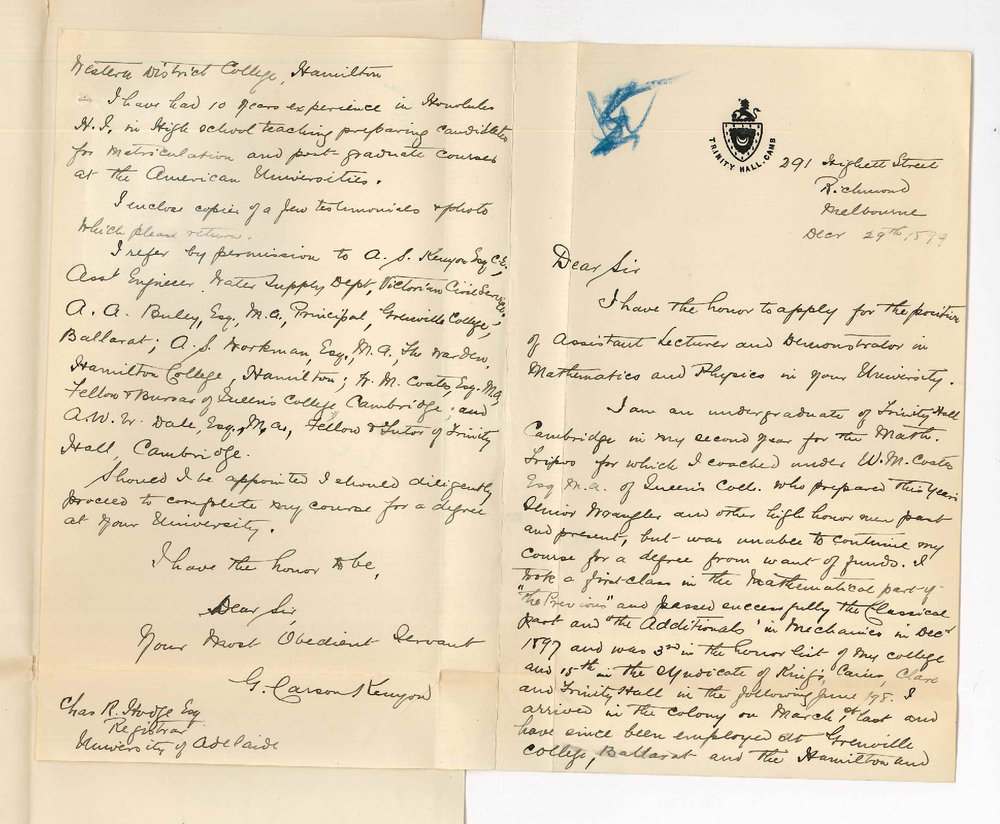 TRINITY HALL. CAMB
291 Highett Street
Richmond
Melbourne
Decr 29th 1899
Dear Sir
I have the honor to apply for the position
of Assistant Lecturer and Demonstrator in
Mathematics and Physics in your University.
I am an undergraduate of Trinity Hall
Cambridge in my second year for the Math.
Tripos for which I coached under W. M. Coates
Esq M.A. of Queen's Coll. who prepared this years
Senior Wrangler and other high honor men past
and present, but was unable to continue my
course for a degree from want of funds. I
took a first class in the Mathematical part of
"the Previous" and passed successfully the Classical
part and "the Additionals" in Mechanics in Decr
1897 and was 3rd in the honor list of my college
and 15th in the Syndicate of King's, Caius, Clare
and Trinity Hall in the following June '98. I
arrived in the colony on March 1st last and
have since been employed at Grenville
College, Ballarat and the Hamilton and
Western District College, Hamilton
I have had 10 years experience in Honolulu
H.I. in High school teaching preparing candidates
for matriculation and post-graduate courses
at the American Universities.
I enclose copies of a few testimonials & photo
which please return.
I refer by permission to A. S. Kenyon Esq C.E.,
Asst Engineer Water Supply Dept, Victorian Civil Service;
A. A. Buley, Esq., M.A., Principal, Grenville College,
Ballarat; A. S. Workman Esq. M.A. The Warden,
Hamilton College, Hamilton; W. M. Coates, Esq. M.A,
Fellow & Bursar of Queen's College Cambridge; and
A. W. W. Dale, Esq., M.A., Fellow & Tutor of Trinity
Hall, Cambridge.
Should I be appointed I should diligently
proceed to complete my course for a degree
at your University.
I have the honor to be,
Dear Sir,
Your Most Obedient Servant
G. Carson Kenyon
Chas R. Hodge Esq
Registrar
University of Adelaide